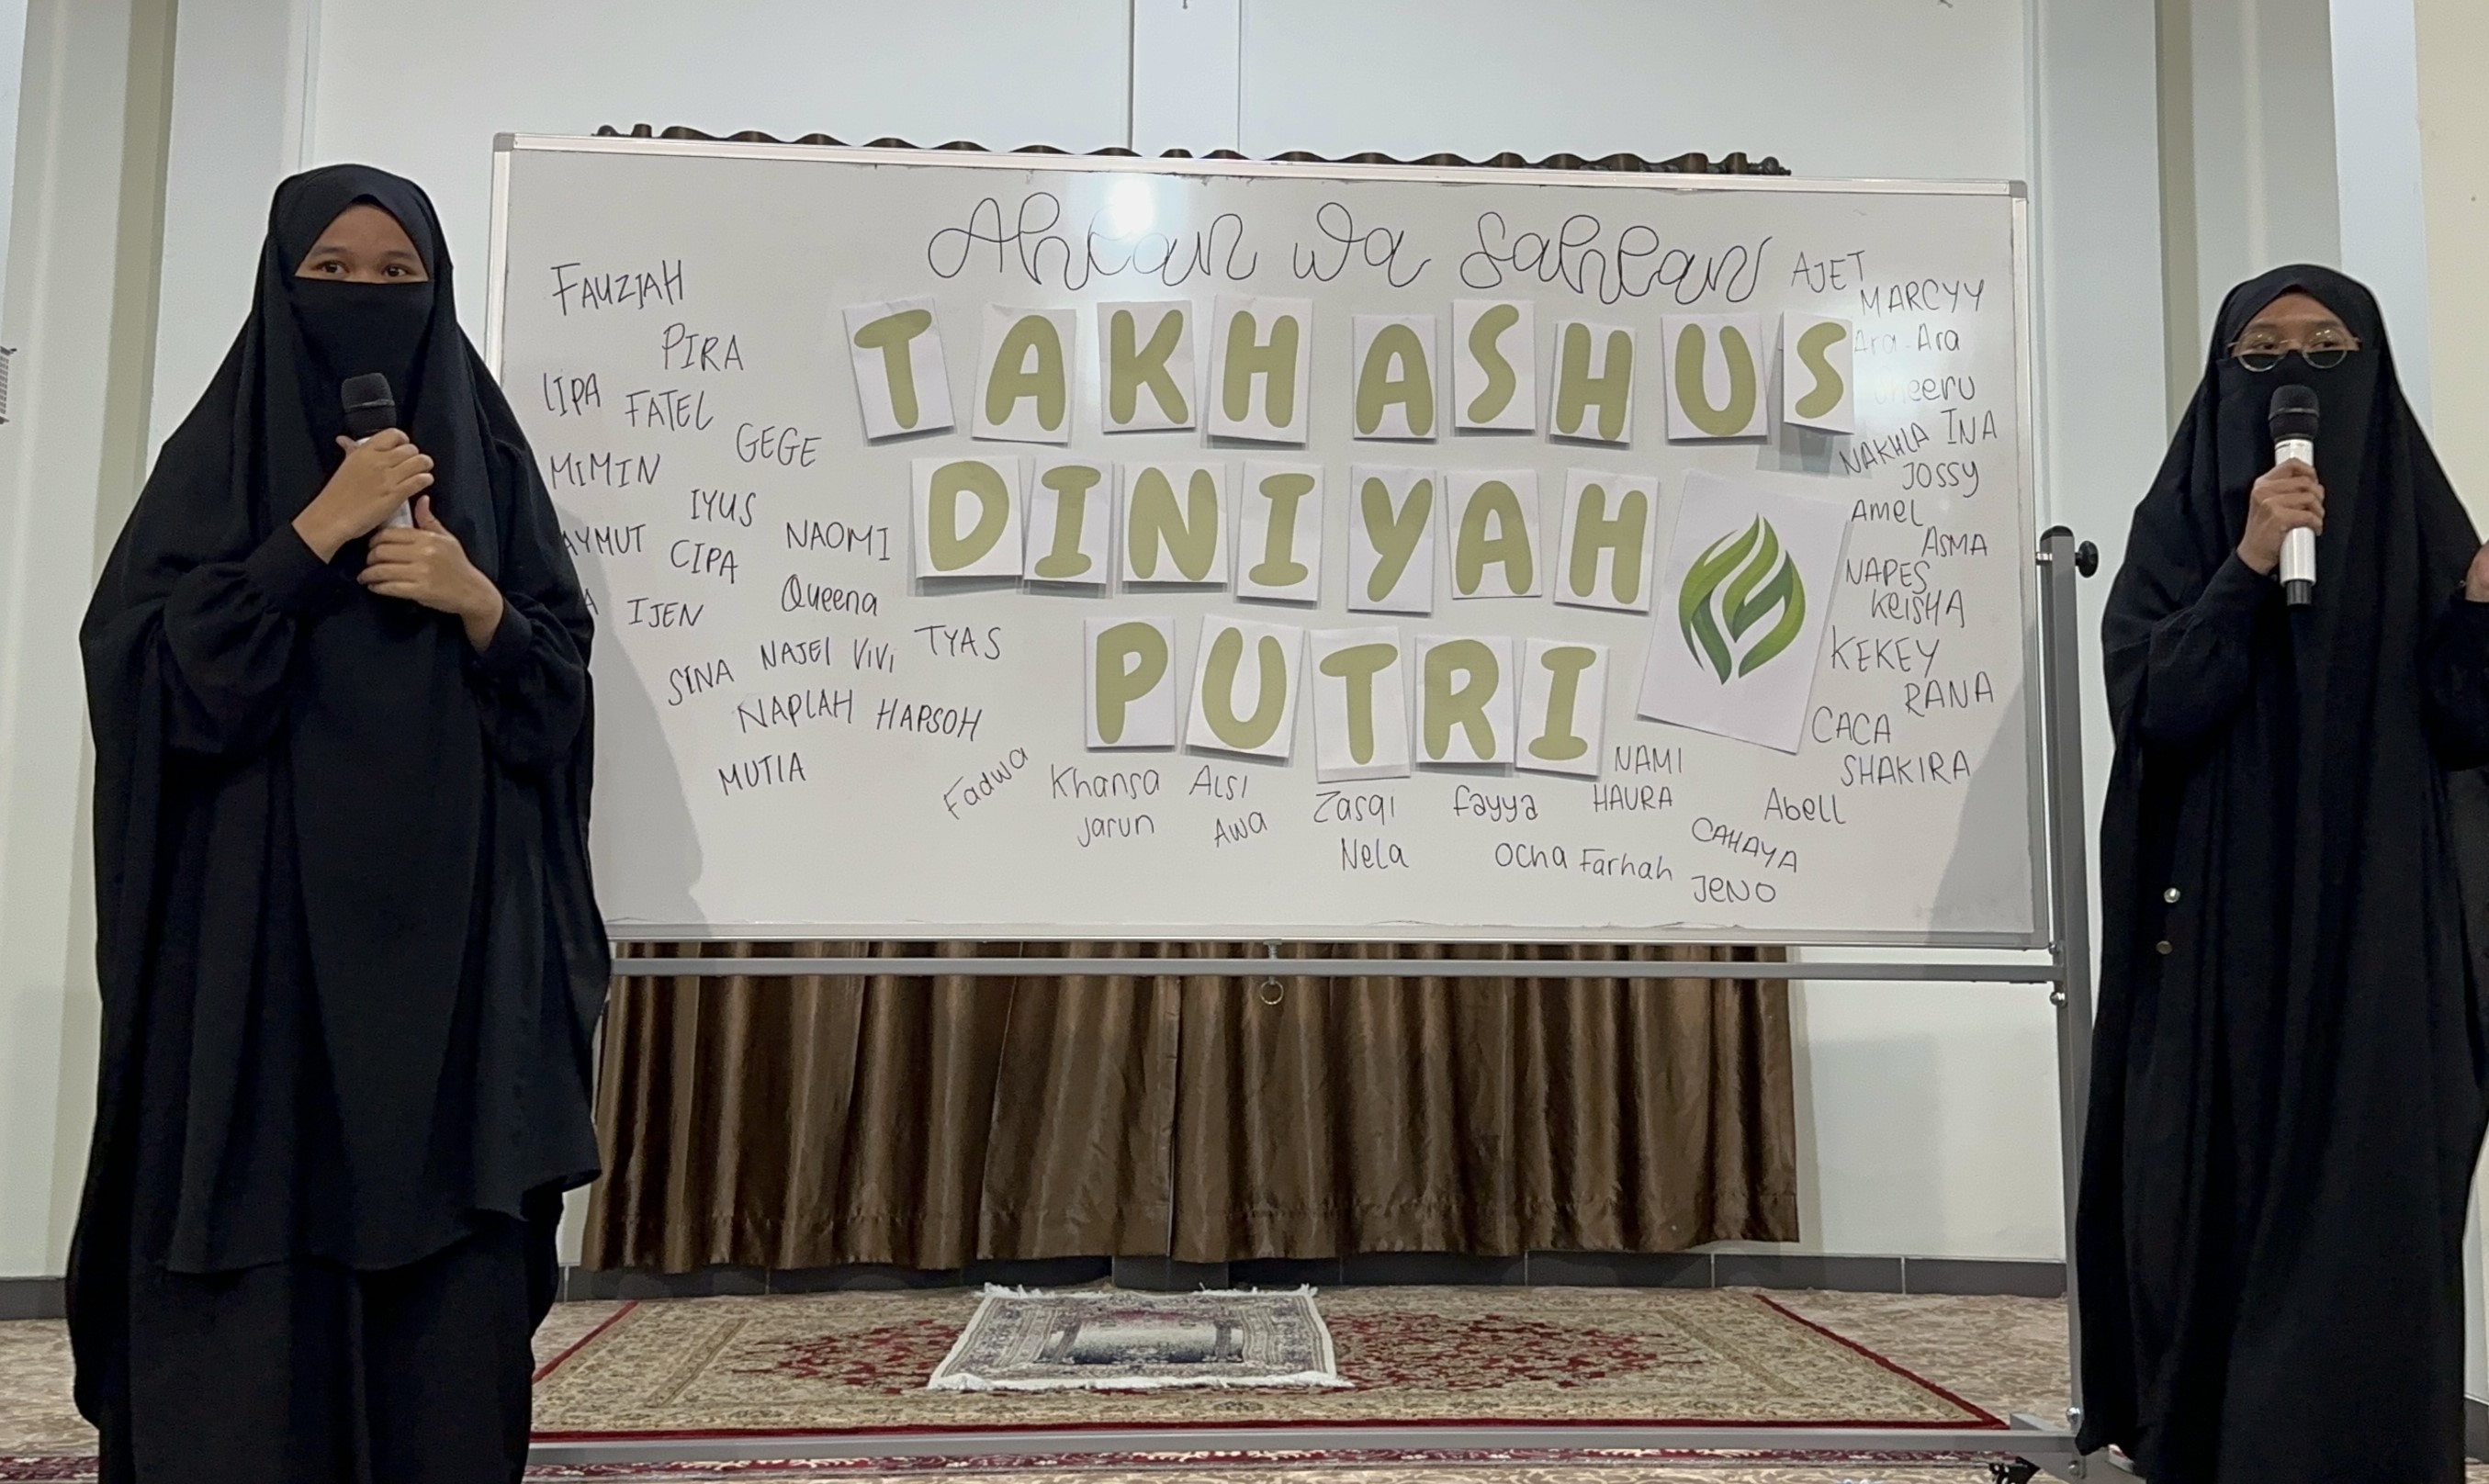 Ahlan wa Sahlan
TAKHASHUS
DINIYAH
PUTRI
FAUZIAH
PIRA
LIPA
FATEL
GEGE
MIMIN
IYUS
AYMUT
CIPA
NAOMI
IJEN
Queena
SINA
NAJEI
VIVI
TYAS
NAPLAH
HAPSOH
MUTIA
Fadwa
Khansa
Jarun
ALSI
AWA
Zasqi
Nela
Fayya
Ocha
Farhah
NAMI
HAURA
CAHAYA
JENO
Abell
AJET
MARCYY
Ara-Ara
NAKHLA
INA
JOSSY
AMEL
ASMA
NAPES
KEISHA
KEKEY
RANA
CACA
SHAKIRA